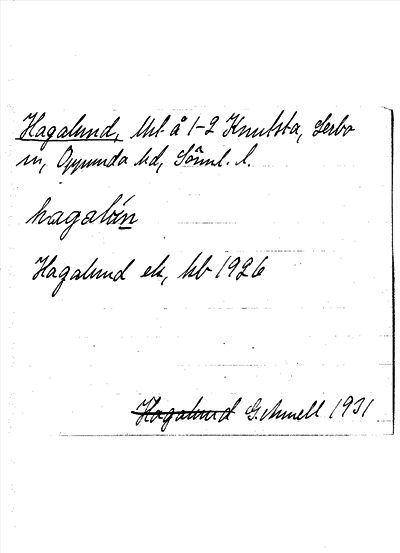 Hagalund, Uht å 1-2 Knutsta, Lerbo
sn, Oppunda hd, Söml. l.
hagalún
Hagalund ek, kb 1926
Hagalund G. Knuell 1931